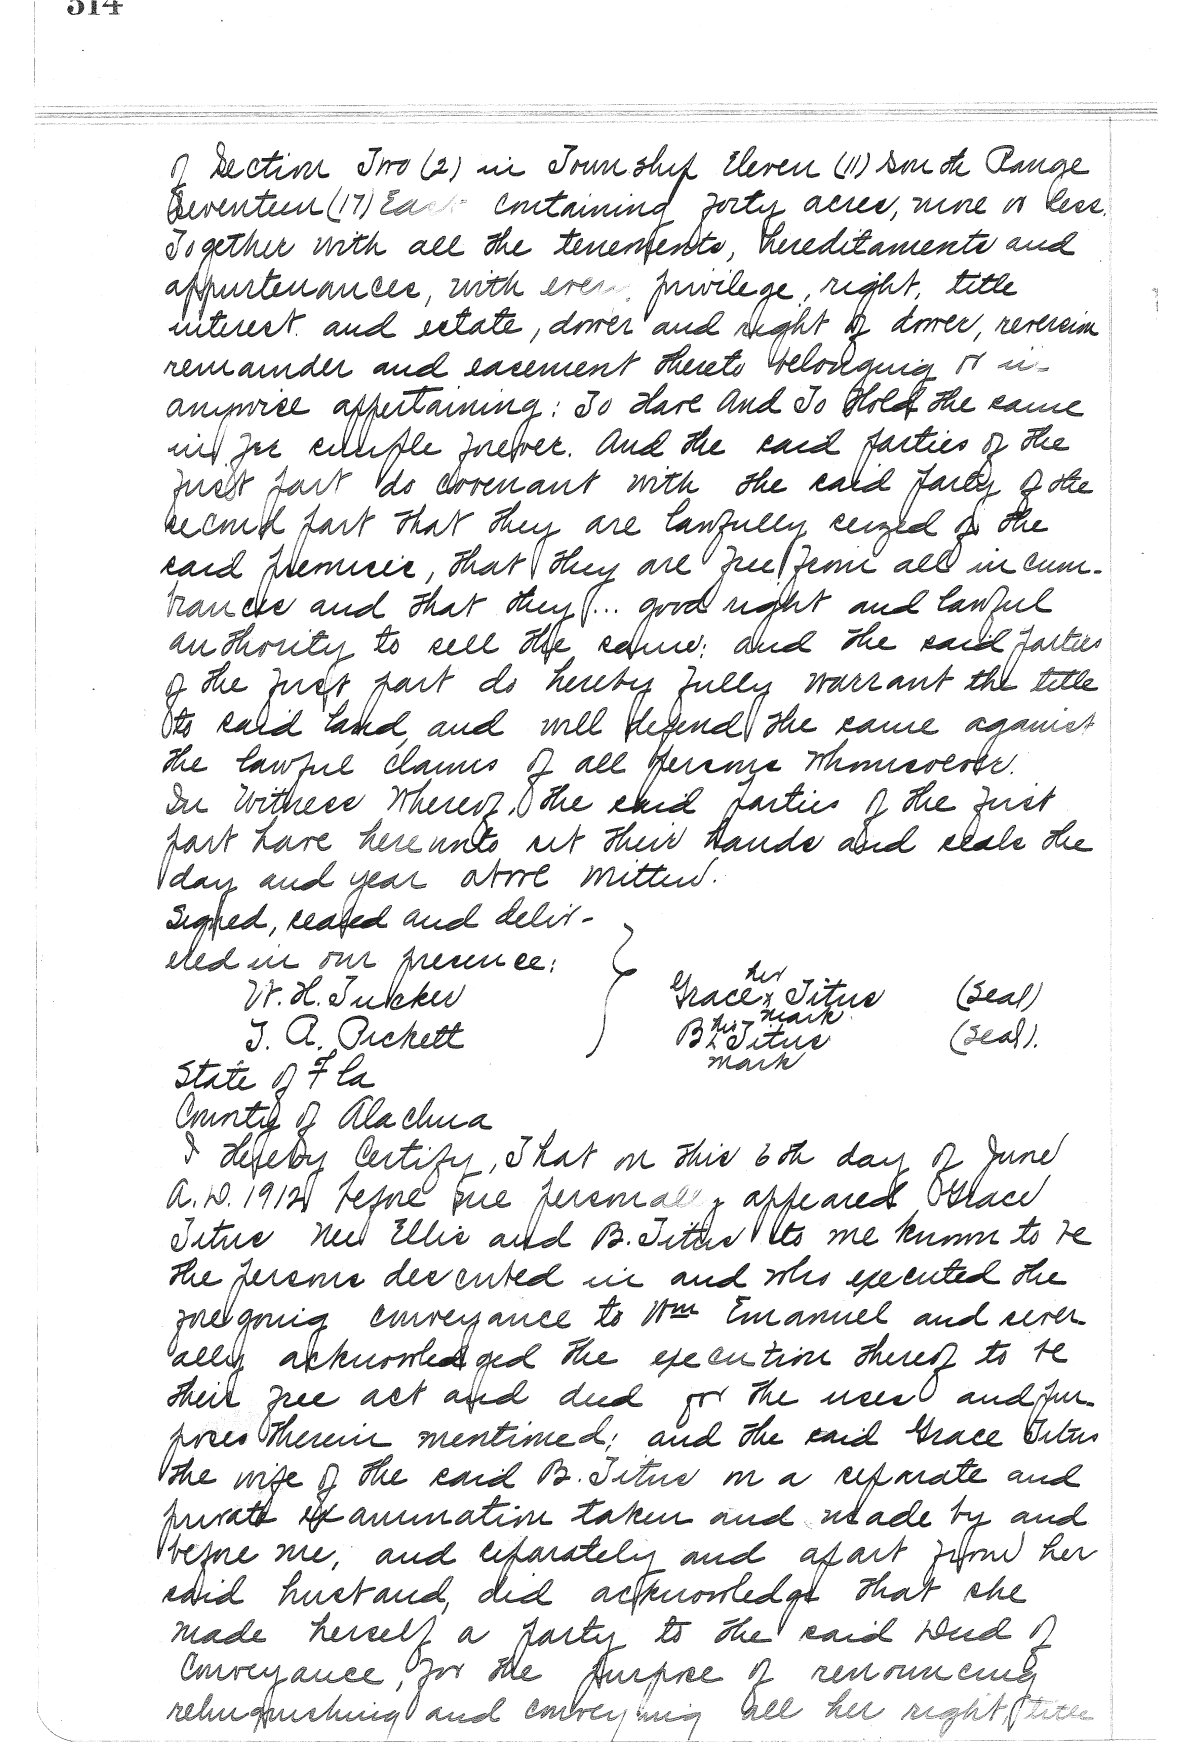 314
of Section Two (2) in Township Eleven (11) South Range
Seventeen (17) East containing forty acres, more or less.
Together with all the tenements, hereditaments and
appurtenances, with every privilege, right, title
interest and estate, dower and right of dower, reversion
remainder and easement thereto belonging or in-
anywise appertaining: To Have And To Hold the same
in fee simple forever. And the said parties of the
first part do covenant with the said party of the
second part that they are lawfully seized of the
said premises, that they are free from all incum-
brances and that they ... good right and lawful
authority to sell the same; and the said parties
of the first part do hereby fully warrant the title
to said land, and will defend the same against
the lawful claims of all persons whomsoever.
In Witness Whereof, the said parties of the first
part have hereunto set their hands and seals the
day and year above written.
Signed, sealed and deliv-
ered in our presence:
W. H. Tucker
T. A. Pickett
her
Grace x Titus (Seal)
mark
his
B x Titus (Seal).
mark
State of Fla
County of Alachua
I Hereby Certify, That on this 6th day of June
A.D. 1912 before me personally appeared Grace
Titus nee Ellis and B. Titus to me known to be
the persons described in and who executed the
foregoing conveyance to Wm Emanuel and sever
ally acknowledged the execution thereof to be
their free act and deed for the uses and pur-
poses therein mentioned; and the said Grace Titus
the wife of the said B. Titus on a separate and
private examination taken and made by and
before me, and separately and apart from her
said husband, did acknowledge that she
made herself a party to the said Deed of
Conveyance, for the purpose of renouncing
relinquishing and conveying all her right, title